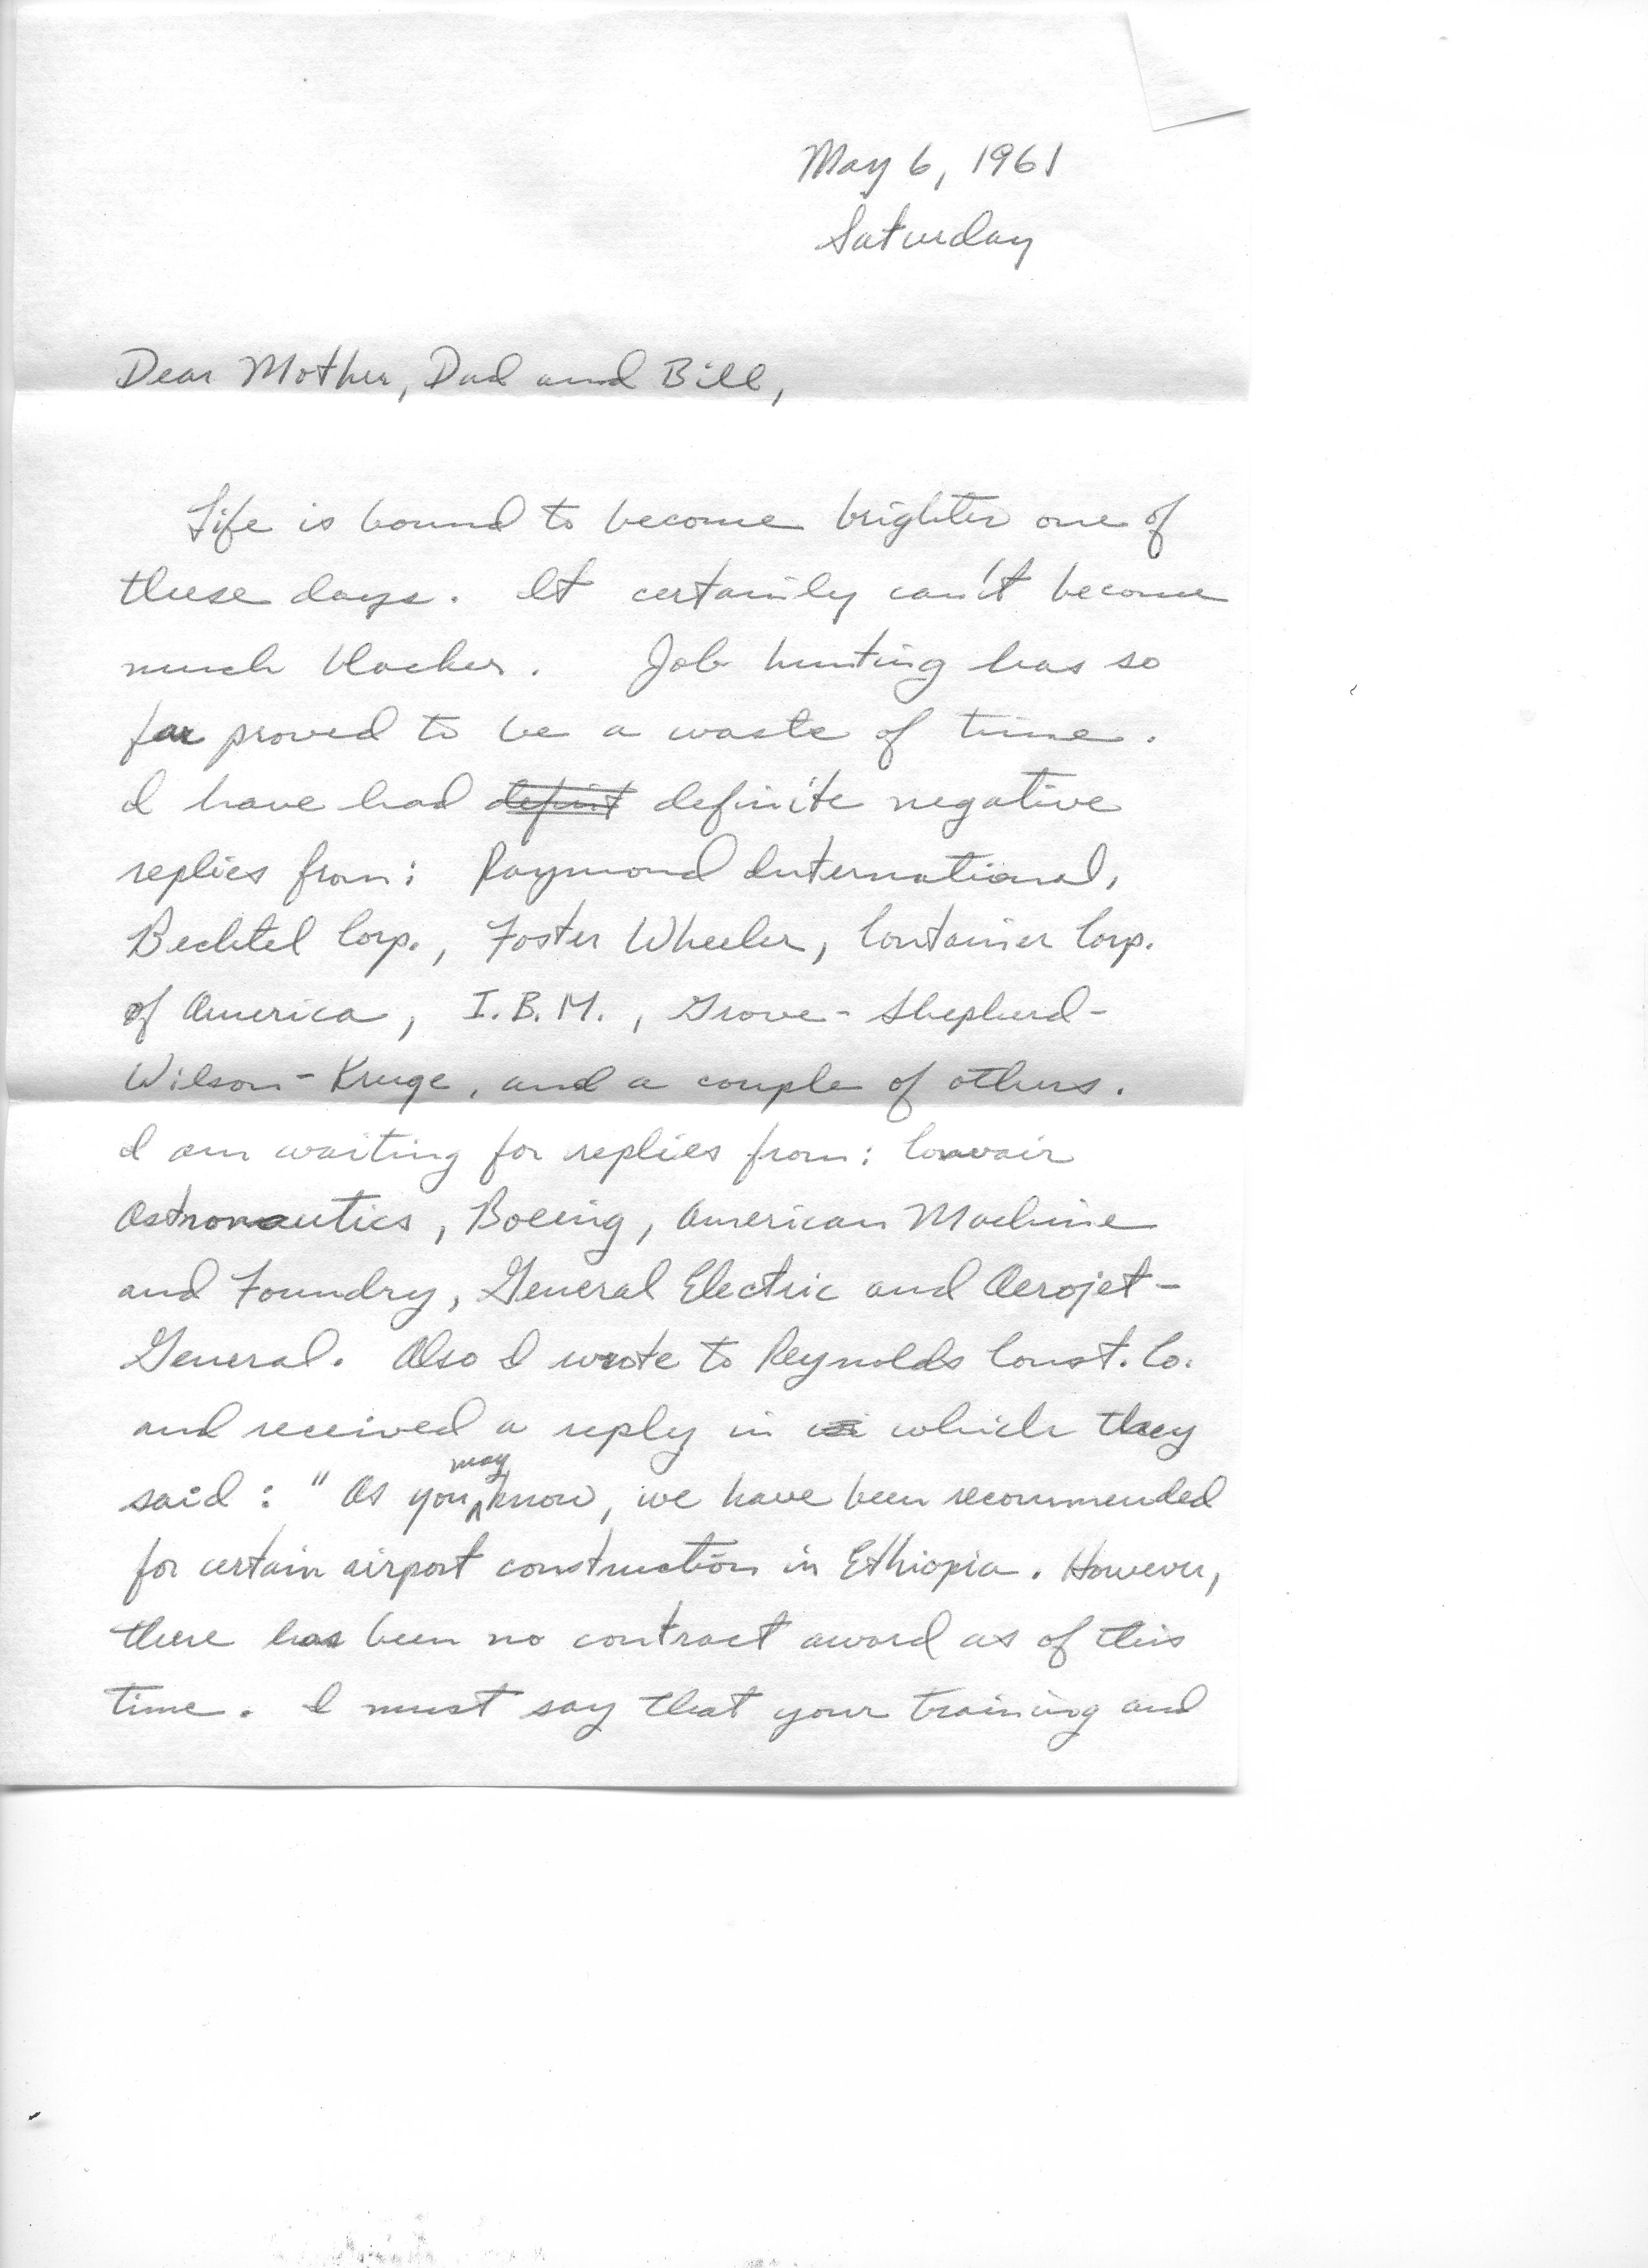 May 6, 1961
Saturday
Dear Mother, Dad and Bill,
Life is bound to become brighter one of
these days. It certainly can't become
much blacker. Job hunting has so
far proved to be a waste of time.
I have had definit definite negative
replies from: Raymond International,
Bechtel Corp., Foster Wheeler, Container Corp.
of America, I.B.M., Grove-Shepherd-
Wilson-Kruge, and a couple of others.
I am waiting for replies from: Convair
Astronautics, Boeing, American Machine
and Foundry, General Electric and Aerojet-
General. Also I wrote to Reynolds Const. Co.
and received a reply in which they
said: "As you may know, we have been recommended
for certain airport construction in Ethiopia. However,
there has been no contract award as of this
time. I must say that your training and